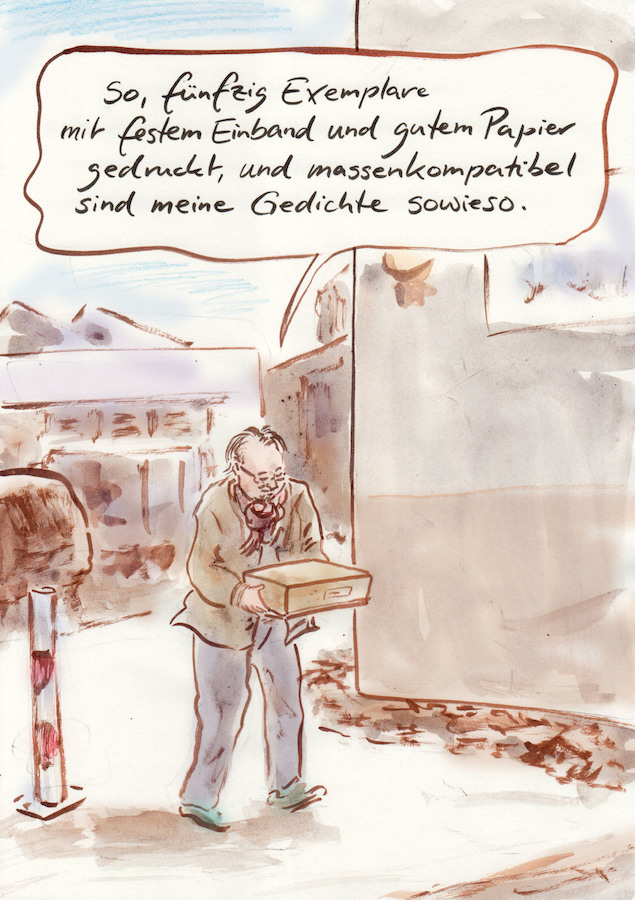 So, fünfzig Exemplare
mit festem Einband und gutem Papier
gedruckt, und massenkompatibel
sind meine Gedichte sowieso.